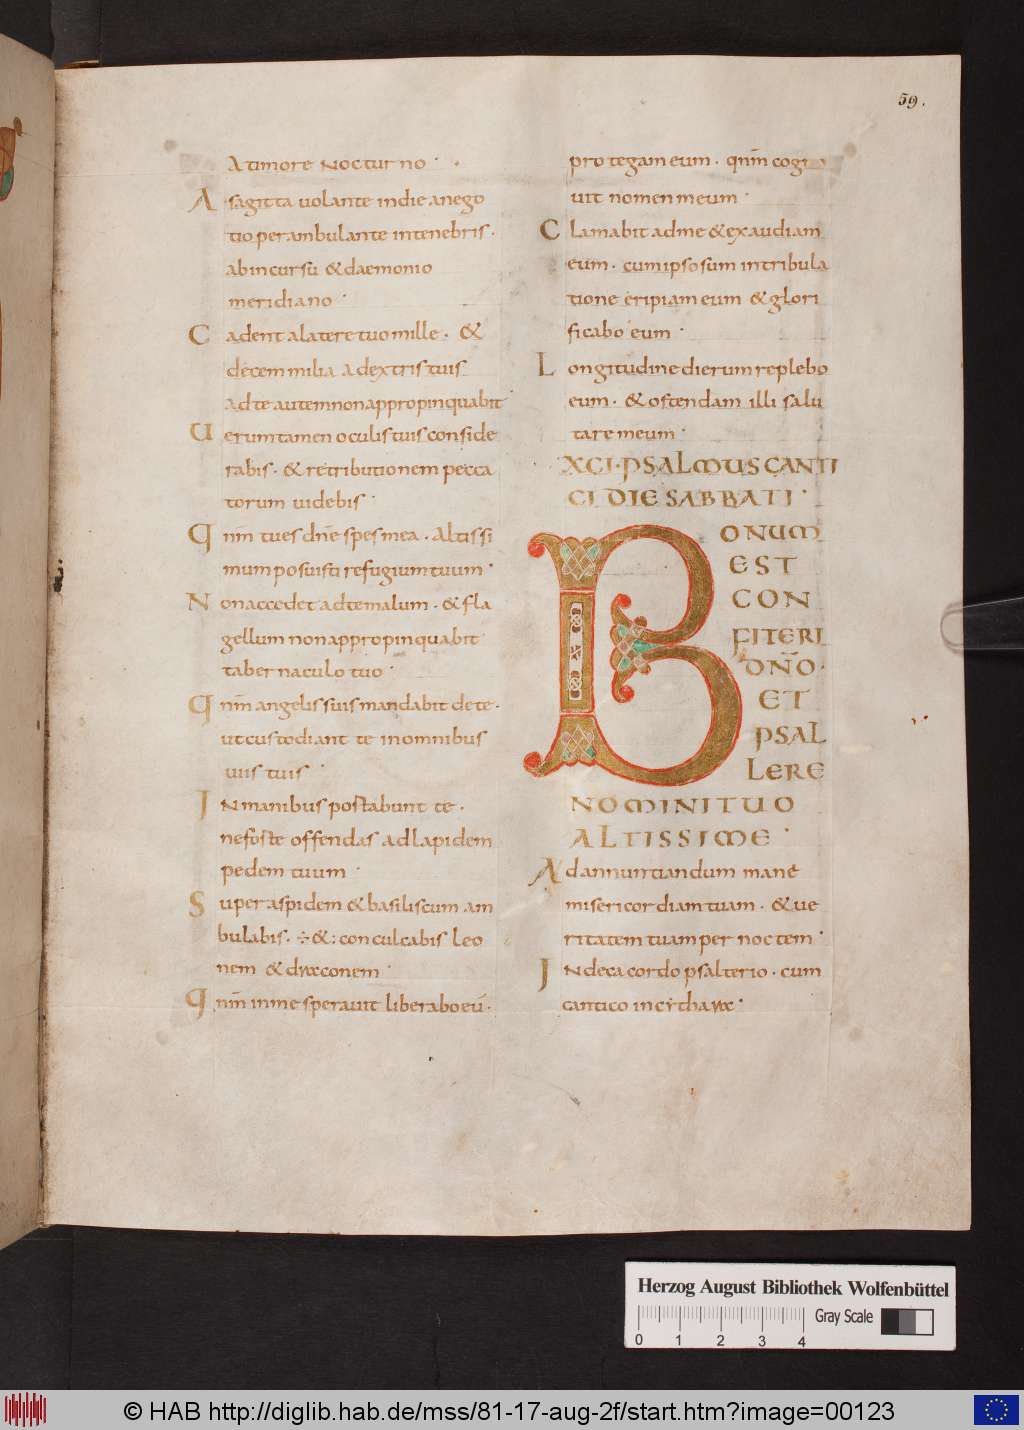 59.
A timore nocturno·
A sagitta uolante indie anego
tio perambulante intenebris·
abincursu & daemonio
meridiano·
Cadent alatere tuo mille· &
decem milia adextris tuis
adte autem non appropinquabit
Uerumtamen oculis tuis conside
rabis· & retributionem pecca
torum uidebis·
Qnm̄ tu es dn̄e spes mea· Altissi
mum posuisti refugium tuum·
Non accedet adte malum· & fla
gellum non appropinquabit
tabernaculo tuo·
Qnm̄ angelis suis mandabit de te·
ut custodiant te inomnibus
uiis tuis·
IN manibus portabunt te·
neforte offendas adlapidem
pedem tuum·
Super aspidem & basiliscum am
bulabis· ÷&: conculcabis leo
nem & draconem·
Qnm̄ inme sperauit liberabo eū·
protegam eum· qnm̄ cogno
uit nomen meum·
Clamabit adme & exaudiam
eum· cum ipso sum intribula
tione eripiam eum & glori
ficabo eum·
Longitudine dierum replebo
eum· & ostendam illi salu
tare meum·
XCI·PSALMUS CANTI
CI DIE SABBATI·
BONUM
EST
CON
FITERI
DN̄O·
ET
PSAL
LERE
NOMINI TUO
ALTISSIME·
Ad annuntiandum mane
misericordiam tuam· & ue
ritatem tuam per noctem·
IN decacordo psalterio· cum
cantico in cythara·
Herzog August Bibliothek Wolfenbüttel
Gray Scale
0 1 2 3 4
© HAB http://diglib.hab.de/mss/81-17-aug-2f/start.htm?image=00123